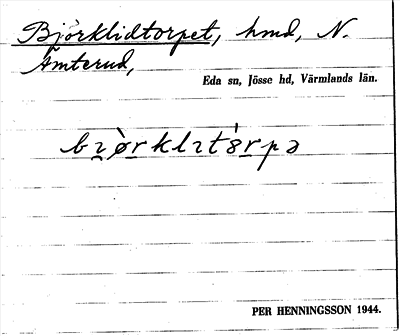 Björklidtorpet, hmd, N.
Ämterud,
Eda sn, Jösse hd, Värmlands län.
bɿø̀rklɿt8́rpə
PER HENNINGSSON 1944.